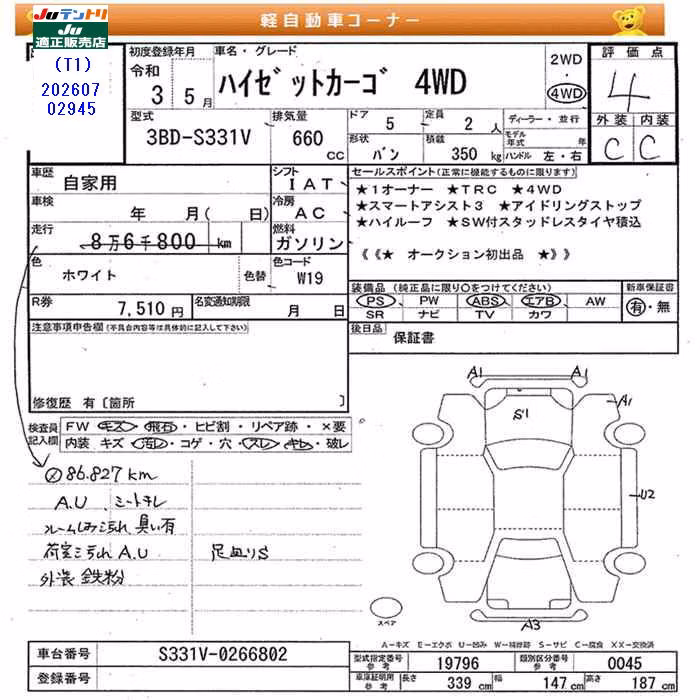 Juテントリ
Ju
適正販売店
(T1)
202607
02945
軽自動車コーナー
初度登録年月
令和
3 5月
車名・グレード
ハイゼットカーゴ 4WD
2WD
・
4WD
評価点
4
外装 内装
C C
型式
3BD-S331V
排気量
660
CC
ドア
5
定員
2 人
形状
バン
積載
350 kg
ディーラー・並行
モデル年式 年
ハンドル 左・右
車歴
自家用
シフト
IAT
車検
年 月( 日)
冷房
AC
走行
8万6千800 km
燃料
ガソリン
色
ホワイト
色替
色コード
W19
R券
7,510 円
名変通知期限
月 日
セールスポイント(正常に機能するものに限ります)
★1オーナー ★TRC ★4WD
★スマートアシスト3 ★アイドリングストップ
★ハイルーフ ★SW付スタッドレスタイヤ積込
《《★ オークション初出品 ★》》
装備品(純正品に限り○をつけてください)
PS PW ABS エアB AW
SR ナビ TV カワ
新車保証書
有・無
後日品
保証書
注意事項申告欄(不具合内容等は具体的に記入して下さい)
修復歴 有〔箇所 〕
検査員記入欄
FW キズ・飛石・ヒビ割・リペア跡・×要
内装 キズ・汚レ・コゲ・穴・スレ・キレ・破レ
86.827km
A.U シートキレ
臭い有
荷室ヨゴレ A.U
外装 鉄粉
A1
A1
A1
S1
U2
A3
スペア
A-キズ E-エクボ U-凹み W-補修跡 S-サビ C-腐食 XX-交換済
車台番号
S331V-0266802
登録番号
型式指定番号
参考
19796
類別区分番号
参考
0045
車庫証明用
参考
長さ 339 cm
幅 147 cm
高さ 187 cm